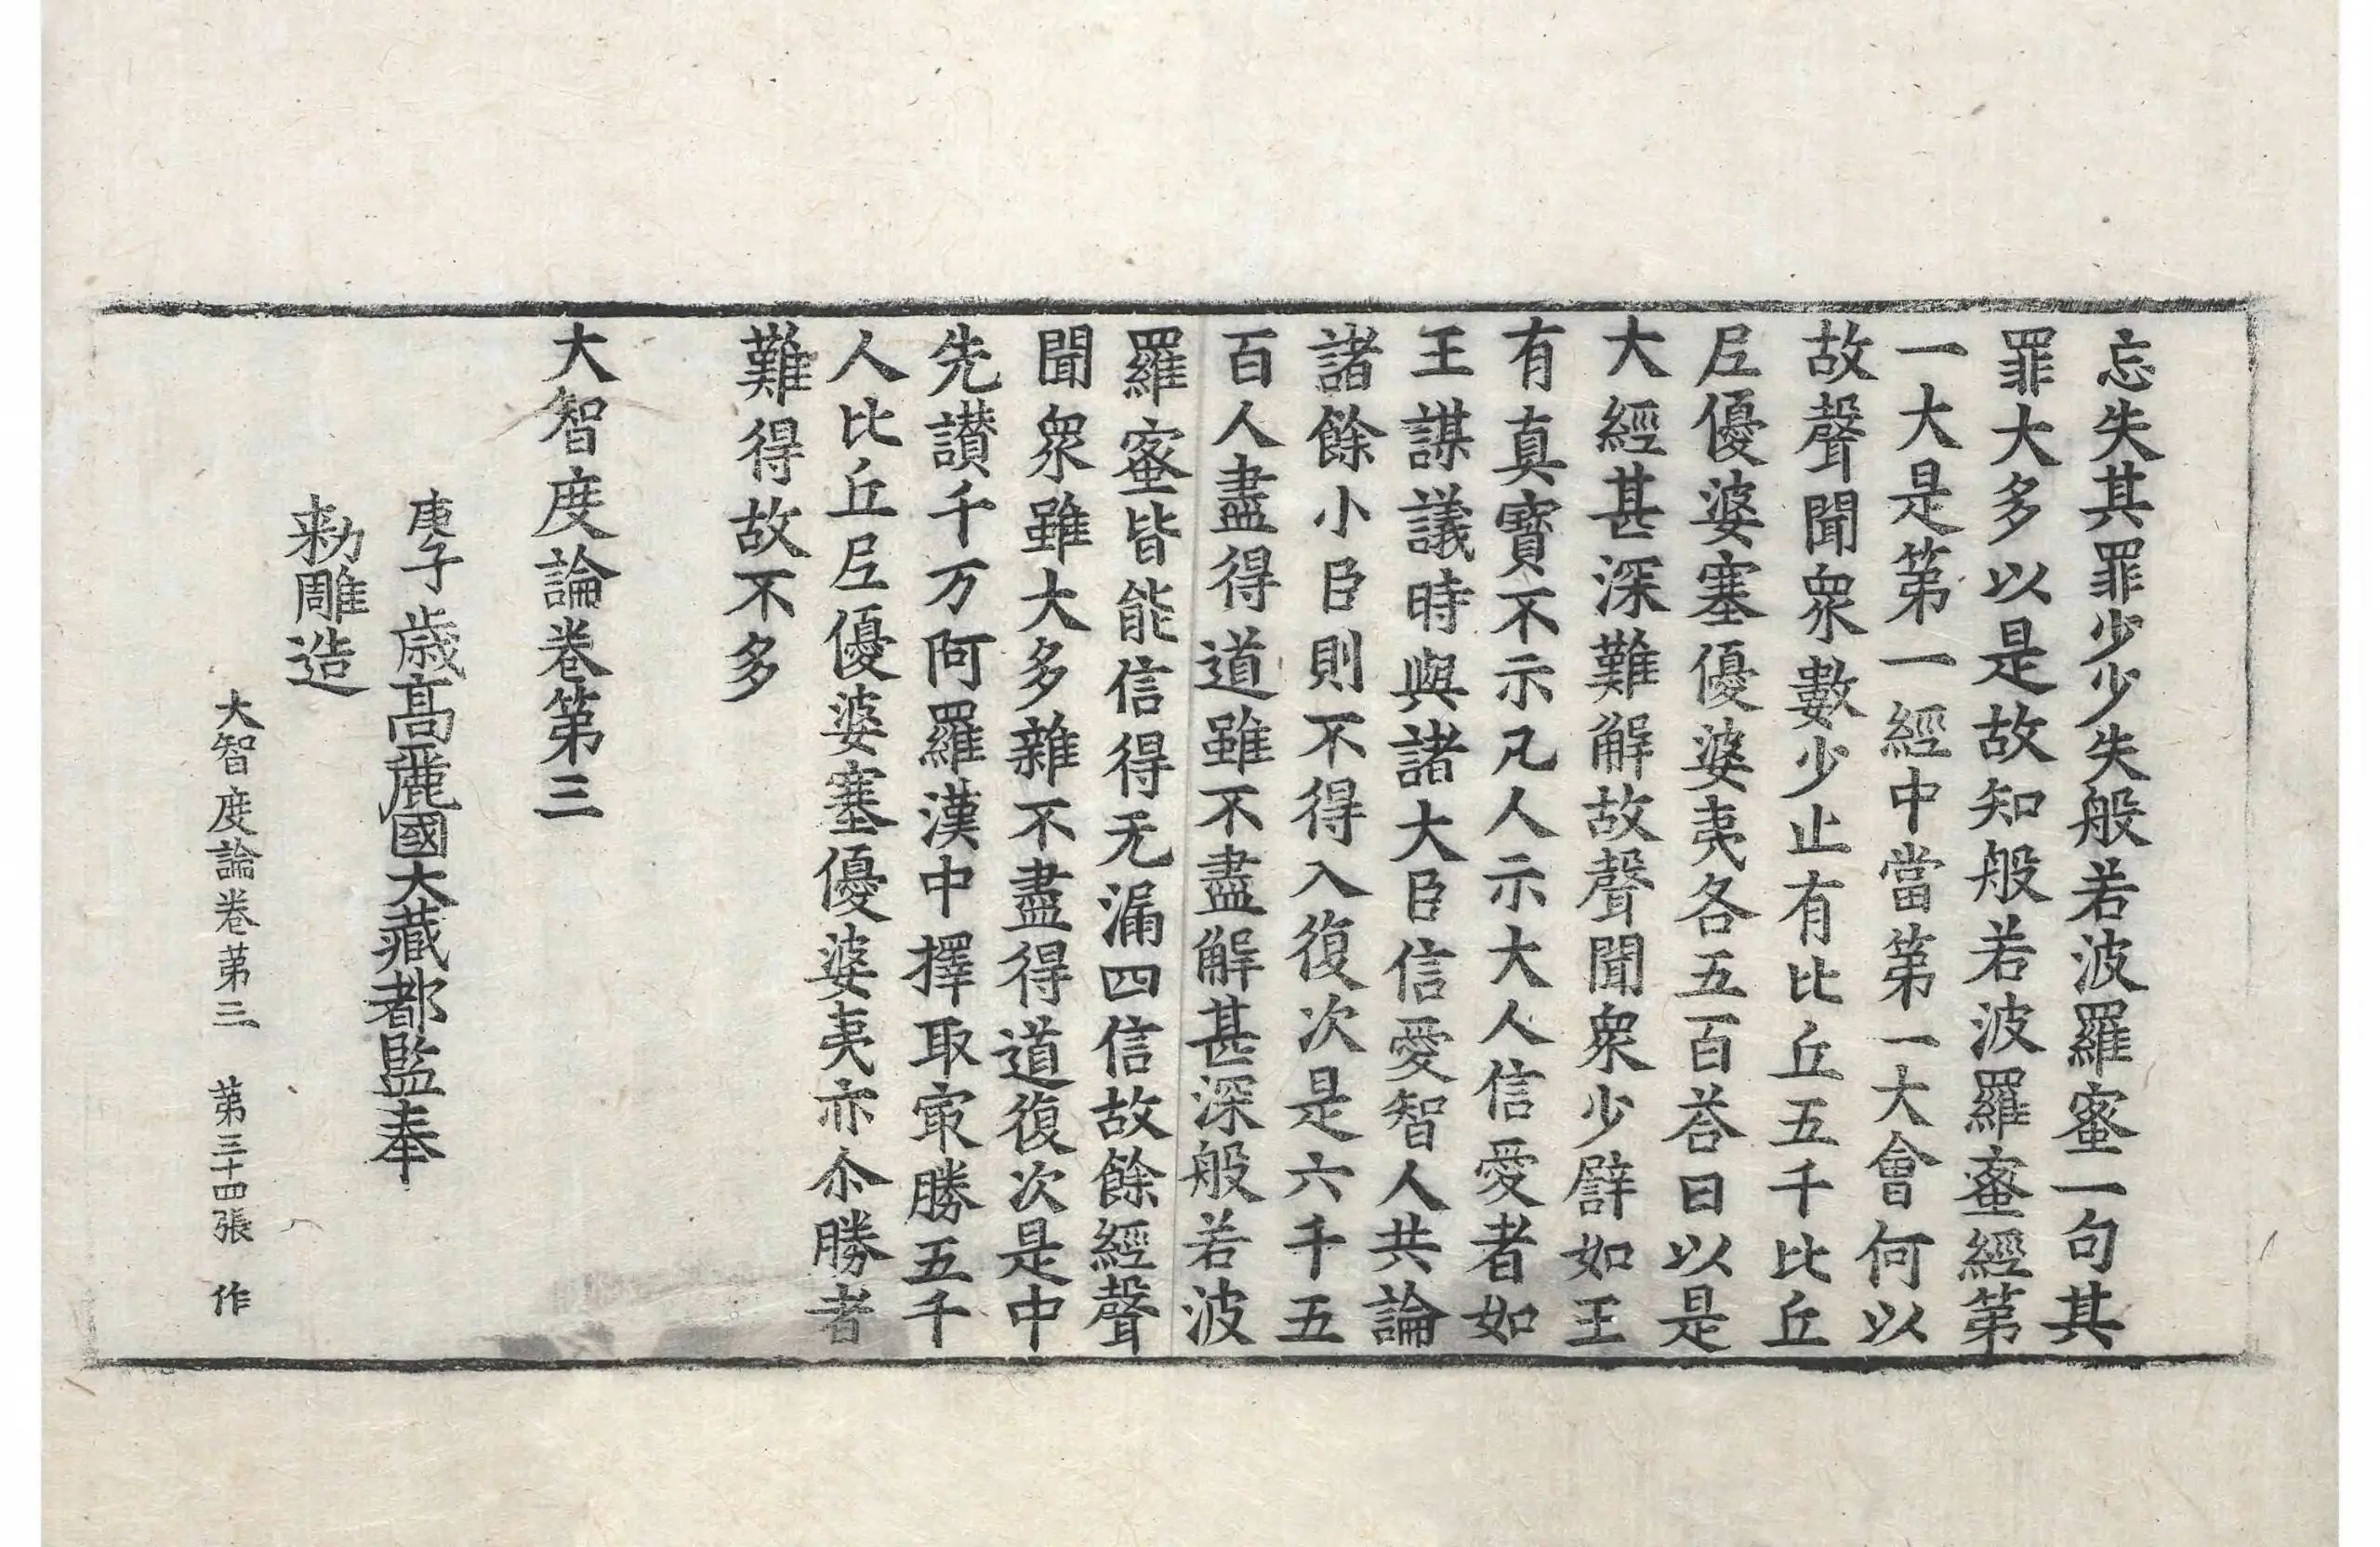 忘失其罪少少失般若波羅蜜一句其
罪大多以是故知般若波羅蜜經第
一大是第一經中當第一大會何以
故聲聞衆數少止有比丘五千比丘
尼優婆塞優婆夷各五百荅曰以是
大經甚深難解故聲聞衆少譬如王
有真寶不示凡人示大人信愛者如
王謀議時與諸大臣信愛智人共論
諸餘小臣則不得入復次是六千五
百人盡得道雖不盡解甚深般若波
羅蜜皆能信得无漏四信故餘經聲
聞衆雖大多雜不盡得道復次是中
先讃千万阿羅漢中擇取冣勝五千
人比丘尼優婆塞優婆夷亦尒勝者
難得故不多
大智度論卷第三
庚子歲高麗國大藏都監奉
勑雕造
大智度論卷苐三 苐三十四張 作